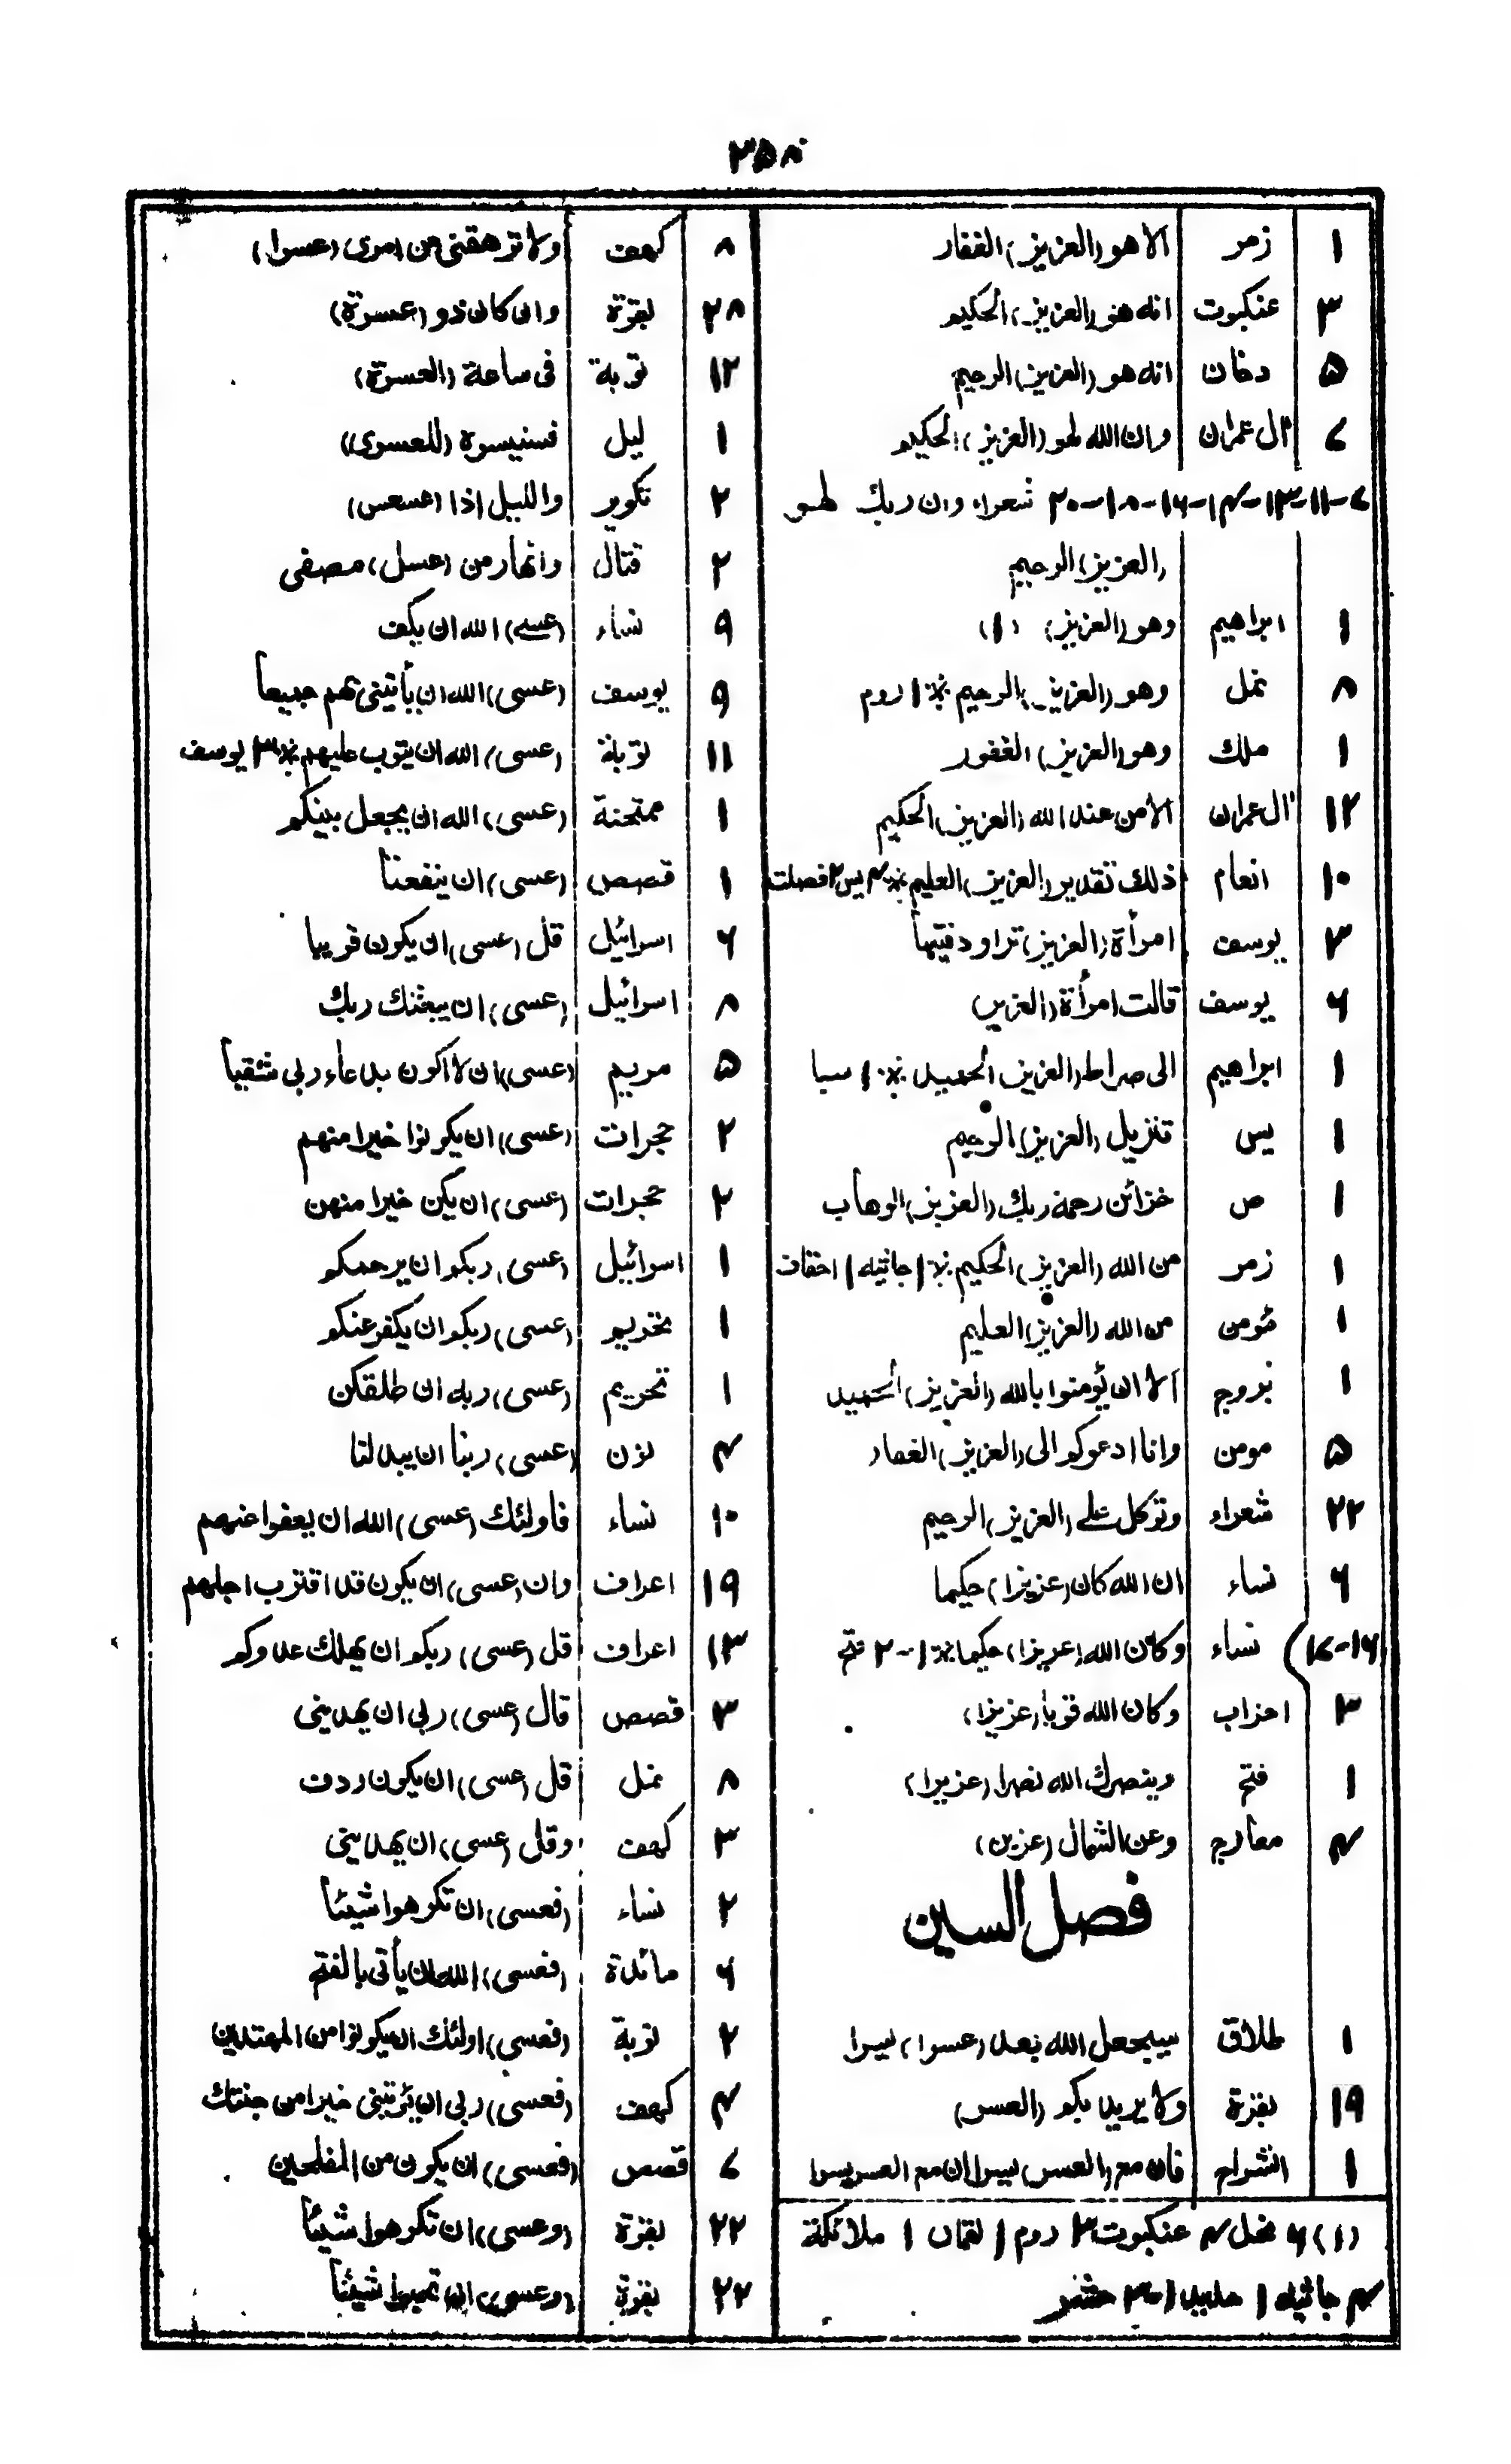 ۳۵۸
۱ زمر الا هو (العزيز) الغفار
۳ عنكبوت انه هو (العزيز) الحكيم
۵ دخان انه هو (العزيز) الرحيم
۷ آل عمران وان الله لهو (العزيز) الحكيم
۷-۱۱-۱۳-۱۴-۱۶-۱۸-۲۰ شعراء وان ربك لهو
(العزيز) الرحيم
۱ ابراهيم وهو (العزيز) (۱)
۸ نمل وهو (العزيز) الرحيم ٪ ۱ روم
۱ ملك وهو (العزيز) الغفور
۱۲ آل عمران الا من عند الله (العزيز) الحكيم
۱۰ انعام ذلك تقدير (العزيز) العليم ٪ ۴ يس ۲ فصلت
۳ يوسف امرأة (العزيز) تراود فتيها
۶ يوسف قالت امرأة (العزيز)
۱ ابراهيم الى صراط (العزيز) الحميد ٪ ۱ سبا
۱ يس تنزيل (العزيز) الرحيم
۱ ص خزائن رحمة ربك (العزيز) الوهاب
۱ زمر من الله (العزيز) الحكيم ٪ ۱ جاثيه ۱ احقاف
۱ مؤمن من الله (العزيز) العليم
۱ بروج الا ان يؤمنوا بالله (العزيز) الحميد
۵ مومن وانا ادعوكم الى (العزيز) الغفار
۲۲ شعراء وتوكل على (العزيز) الرحيم
۶ نساء ان الله كان (عزيزا) حكيما
۱۶-۱۷) نساء وكان الله (عزيزا) حكيما ٪ ۱-۲ فتح
۳ احزاب وكان الله قويا (عزيزا)
۱ فتح وينصرك الله نصرا (عزيزا)
۴ معارج وعن الشمال (عزين)
فصل السين
۱ طلاق سيجعل الله بعد (عسرا) يسرا
۱۹ بقرة ولا يريد بكم (العسر)
۱ انشراح فان مع (العسر) يسرا ان مع العسر يسرا
(۱) ۶ نحل ۴ عنكبوت ۳ روم ۱ لقمان ۱ ملائكة
۴ جاثيه ۱ حديد ۱-۳ حشر
۸ كهف ولا ترهقنى من امرى (عسرا)
۲۸ بقرة وان كان ذو (عسرة)
۱۲ توبة فى ساعة (العسرة)
۱ ليل فسنيسره (للعسرى)
۲ تكوير والليل اذا (عسعس)
۲ قتال وانهار من (عسل) مصفى
۹ نساء (عسى) الله ان يكف
۹ يوسف (عسى) الله ان يأتينى بهم جميعاً
۱۱ توبة (عسى) الله ان يتوب عليهم ٪ ۳ يوسف
۱ ممتحنة (عسى) الله ان يجعل بينكم
۱ قصص (عسى) ان ينفعنا
۶ اسرائيل قل (عسى) ان يكون قريبا
۸ اسرائيل (عسى) ان يبعثك ربك
۵ مريم (عسى) ان لا اكون بدعاء ربى شقيا
۲ حجرات (عسى) ان يكونوا خيرا منهم
۲ حجرات (عسى) ان يكن خيرا منهن
۱ اسرائيل (عسى) ربكم ان يرحمكم
۱ تحريم (عسى) ربكم ان يكفر عنكم
۱ تحريم (عسى) ربه ان طلقكن
۴ نون (عسى) ربنا ان يبدلنا
۱۰ نساء فاولئك (عسى) الله ان يعفوا عنهم
۱۹ اعراف وان (عسى) ان يكون قد اقترب اجلهم
۱۳ اعراف قل (عسى) ربكم ان يهلك عدوكم
۳ قصص قال (عسى) ربى ان يهدينى
۸ نمل قل (عسى) ان يكون ردف
۳ كهف وقل (عسى) ان يهدينى
۲ نساء (فعسى) ان تكرهوا شيئاً
۶ مائدة (فعسى) الله ان يأتى بالفتح
۲ توبة (فعسى) اولئك ان يكونوا من المهتدين
۴ كهف (فعسى) ربى ان يؤتينى خيرا من جنتك
۷ قصص (فعسى) ان يكون من المفلحين
۲۲ بقرة (وعسى) ان تكرهوا شيئاً
۲۲ بقرة (وعسى) ان تحبوا شيئاً